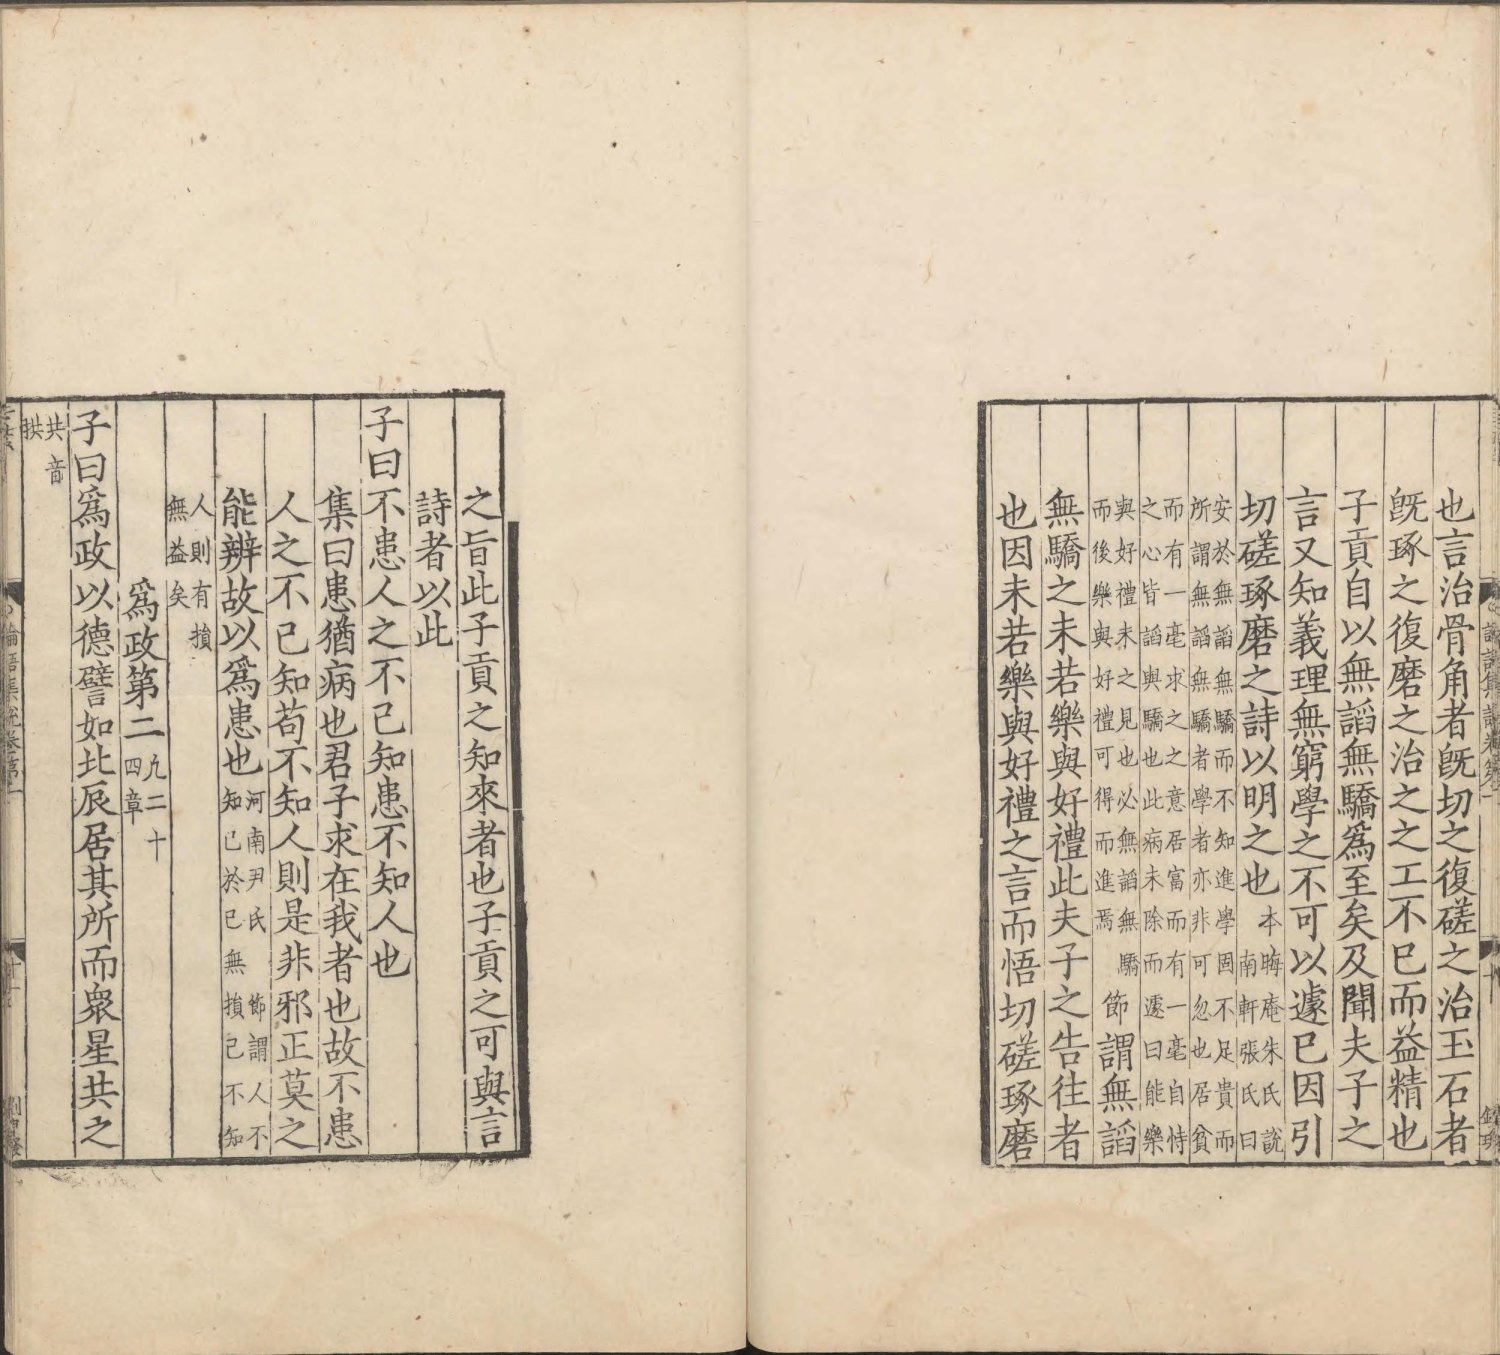 也言治骨角者旣切之復磋之治玉石者
旣琢之復磨之治之之工不已而益精也
子貢自以無諂無驕爲至矣及聞夫子之
言又知義理無窮學之不可以遽已因引
切磋琢磨之詩以明之也
本晦庵朱氏說
南軒張氏曰
安於無諂無驕而不知進學固不足貴而
所謂無諂無驕者學者亦非可忽也居貧
而有一毫求之之意居富而有一毫自恃
之心皆諂與驕也此病未除而遽曰能樂
與好禮未之見也必無諂無驕
而後樂與好禮可得而進焉
節謂無諂
無驕之未若樂與好禮此夫子之告往者
也因未若樂與好禮之言而悟切磋琢磨
之旨此子貢之知來者也子貢之可與言
詩者以此
子曰不患人之不己知患不知人也
集曰患猶病也君子求在我者也故不患
人之不己知苟不知人則是非邪正莫之
能辨故以爲患也
河南尹氏 節謂人不
知己於己無損己不知
人則有損
無益矣
爲政第二
凡二十
四章
子曰爲政以德譬如北辰居其所而衆星共之
共音
拱